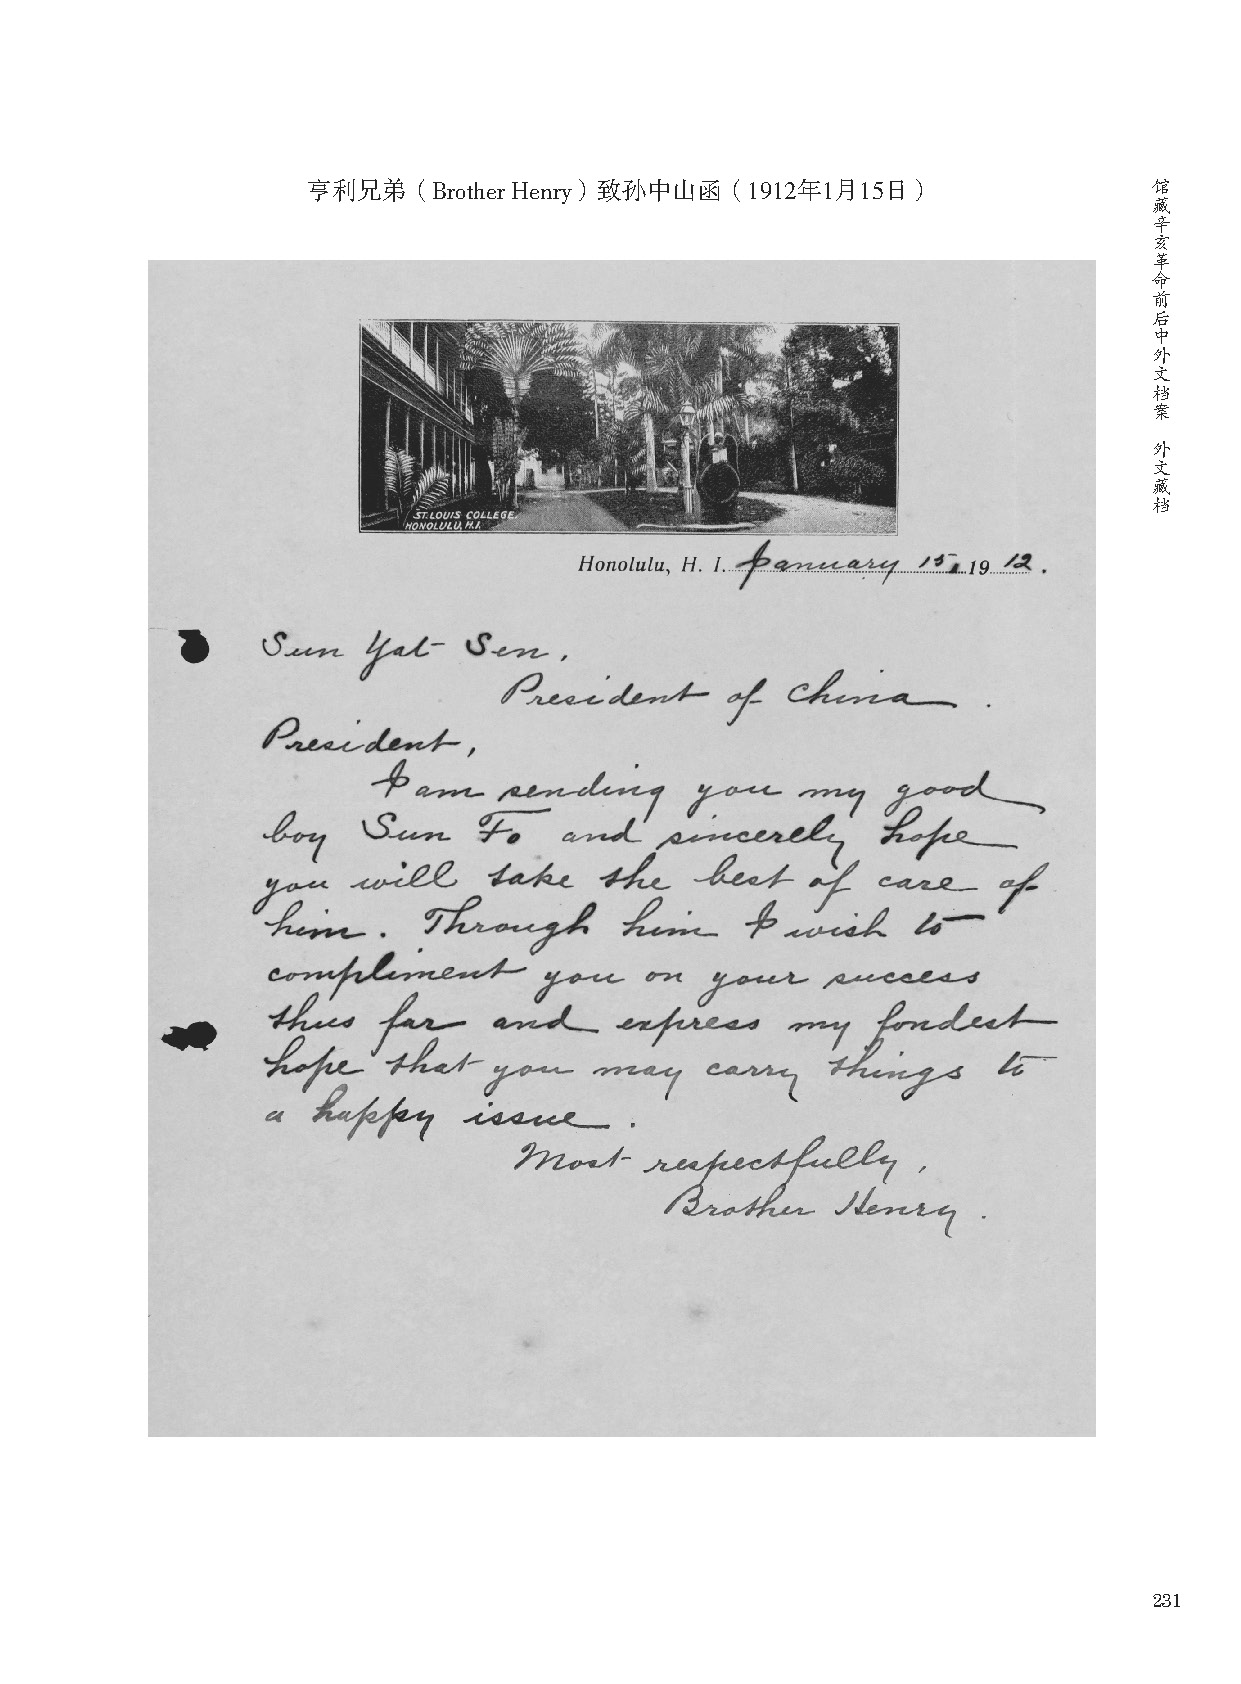 亨利兄弟（Brother Henry）致孙中山函（1912年1月15日）
馆藏辛亥革命前后中外文档案 外文藏档
ST. LOUIS COLLEGE,
HONOLULU, H.I.
Honolulu, H. I. January 15, 1912.
Sun Yat Sen,
President of China.
President,
I am sending you my good
boy Sun Fo and sincerely hope
you will take the best of care of
him. Through him I wish to
compliment you on your success
thus far and express my fondest
hope that you may carry things to
a happy issue.
Most respectfully,
Brother Henry.
231